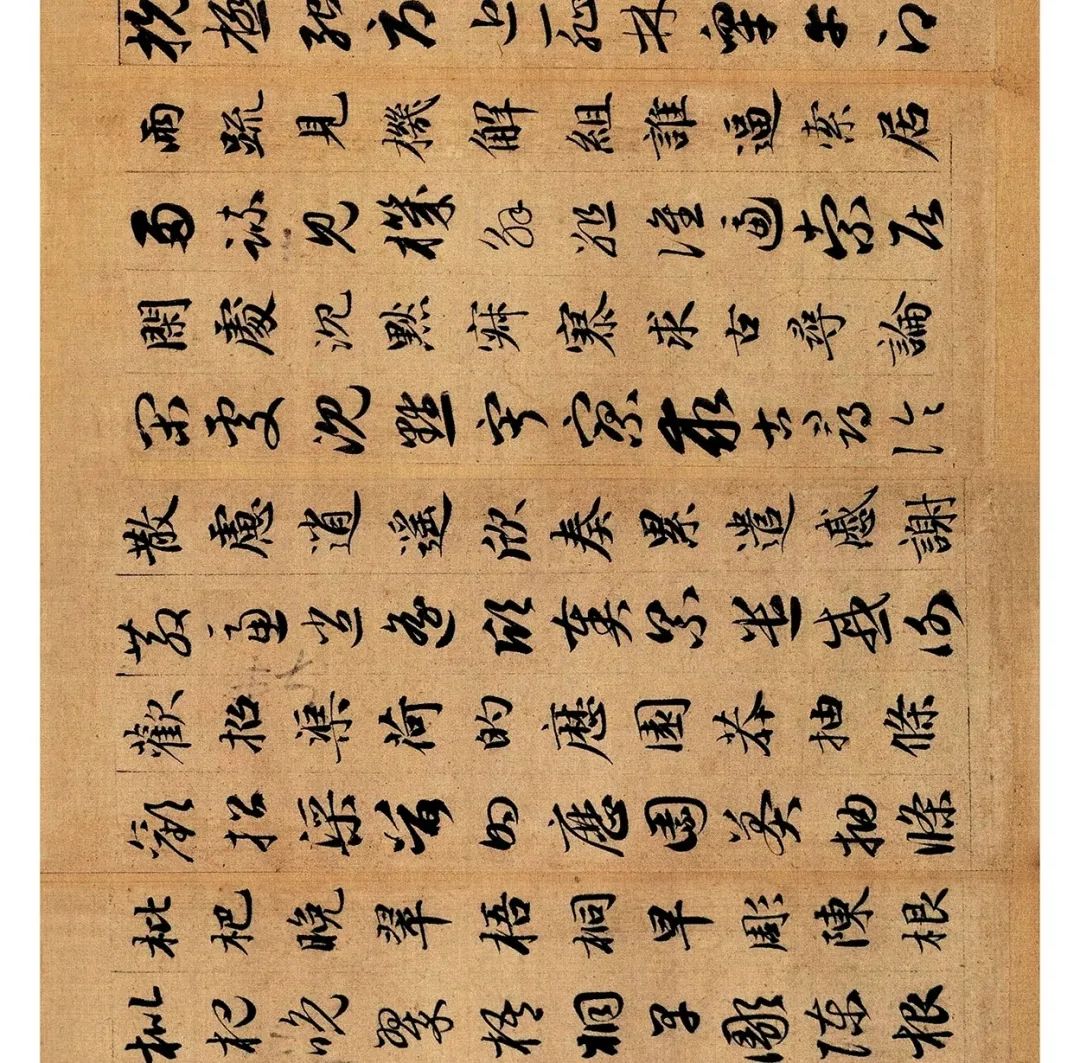 抗極殆辱近恥林皋幸即
兩疏見機解組誰逼索居
兩疏見機解組誰逼索居
閑處沉默寂寥求古尋論
閑處沉默寂寥求古尋論
散慮逍遙欣奏累遣慼謝
散慮逍遙欣奏累遣慼謝
歡招渠荷的歷園莽抽條
歡招渠荷的歷園莽抽條
枇杷晚翠梧桐早彫陳根
枇杷晚翠梧桐早彫陳根